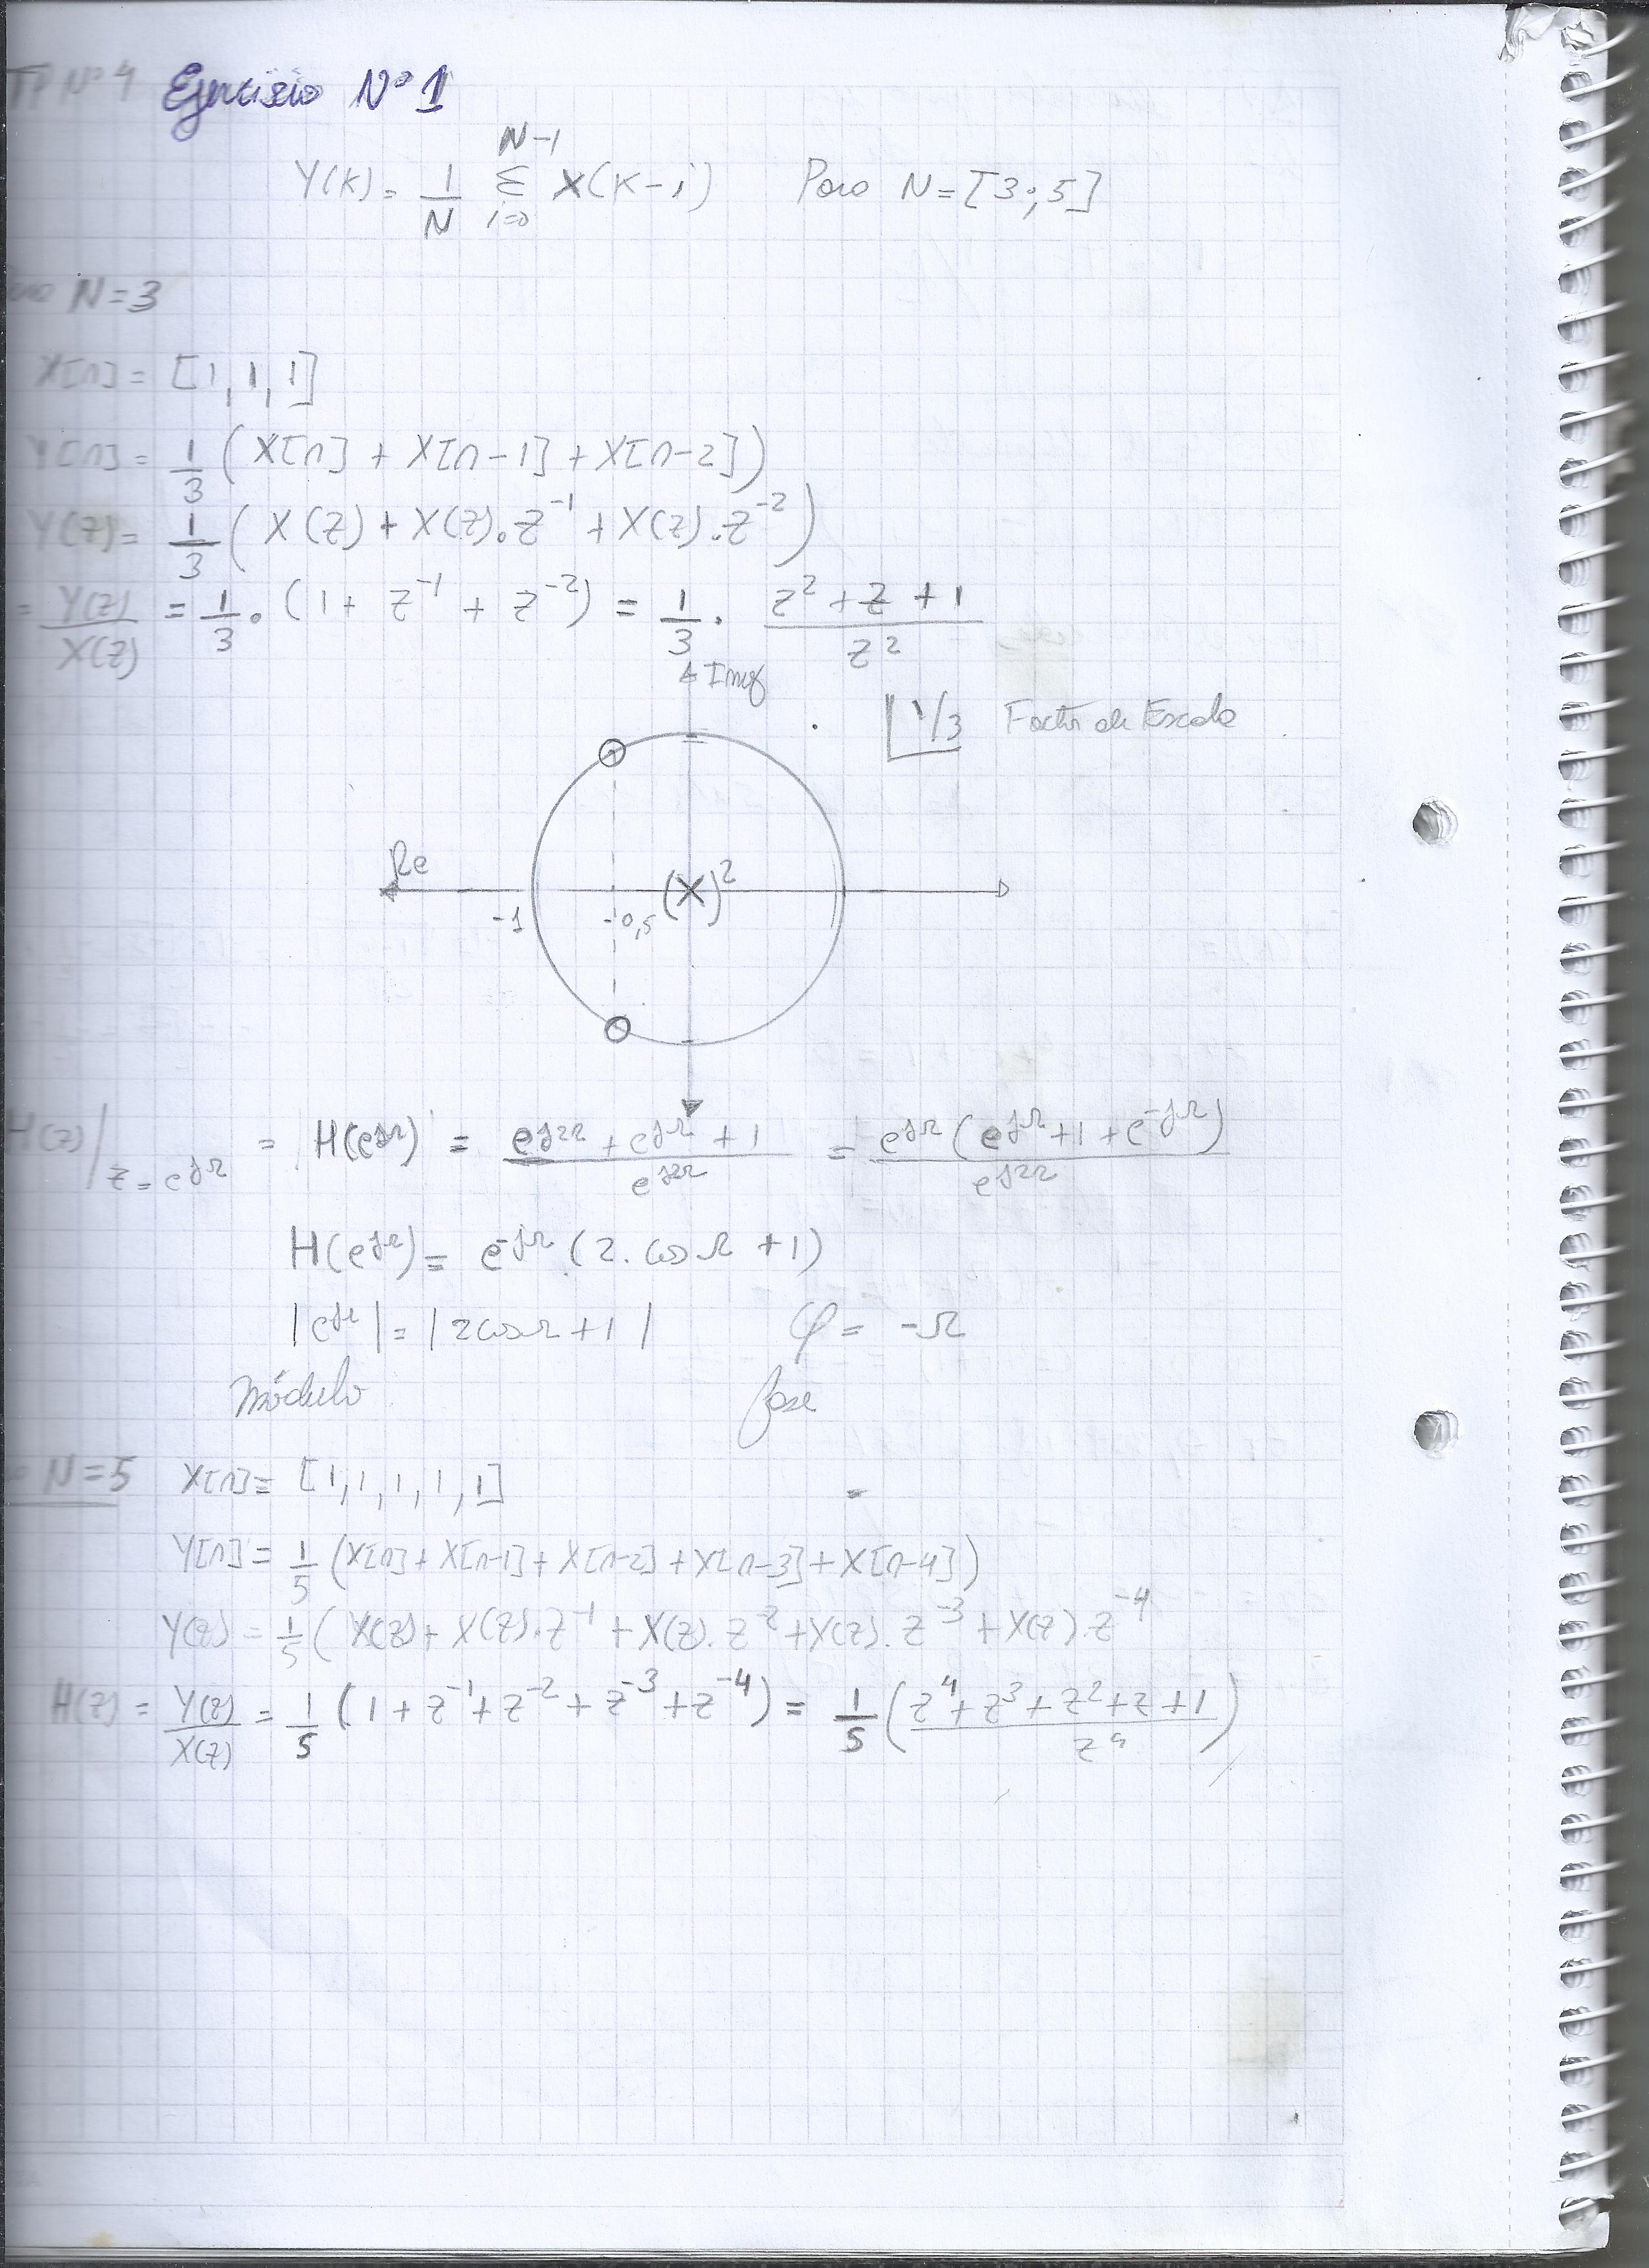 TP Nº 4 Ejercisio Nº 1
Y(K) = 1/N N-1 Σ i=0 X(K-i) Para N=[3;5]
N=3
X[n] = [1,1,1]
Y[n] = 1/3 (X[n] + X[n-1] + X[n-2])
Y(z) = 1/3 (X(z) + X(z).z⁻¹ + X(z).z⁻²)
= Y(z)/X(z) = 1/3 . (1 + z⁻¹ + z⁻²) = 1/3 . (z² + z + 1)/z²
Img
1/3 Factor de Escala
Re
(X)²
-1 -0,5
H(z)|z=e^jΩ = H(e^jΩ) = (e^j2Ω + e^jΩ + 1)/e^j2Ω = e^jΩ (e^jΩ + 1 + e^-jΩ)/e^j2Ω
H(e^jΩ) = e^-jΩ (2.cos Ω + 1)
|e^jΩ| = |2cosΩ + 1| φ = -Ω
módulo fase
N=5 X[n] = [1,1,1,1,1]
Y[n] = 1/5 (X[n] + X[n-1] + X[n-2] + X[n-3] + X[n-4])
Y(z) = 1/5 (X(z) + X(z).z⁻¹ + X(z).z⁻² + X(z).z⁻³ + X(z).z⁻⁴
H(z) = Y(z)/X(z) = 1/5 (1 + z⁻¹ + z⁻² + z⁻³ + z⁻⁴) = 1/5 ((z⁴ + z³ + z² + z + 1)/z⁴)